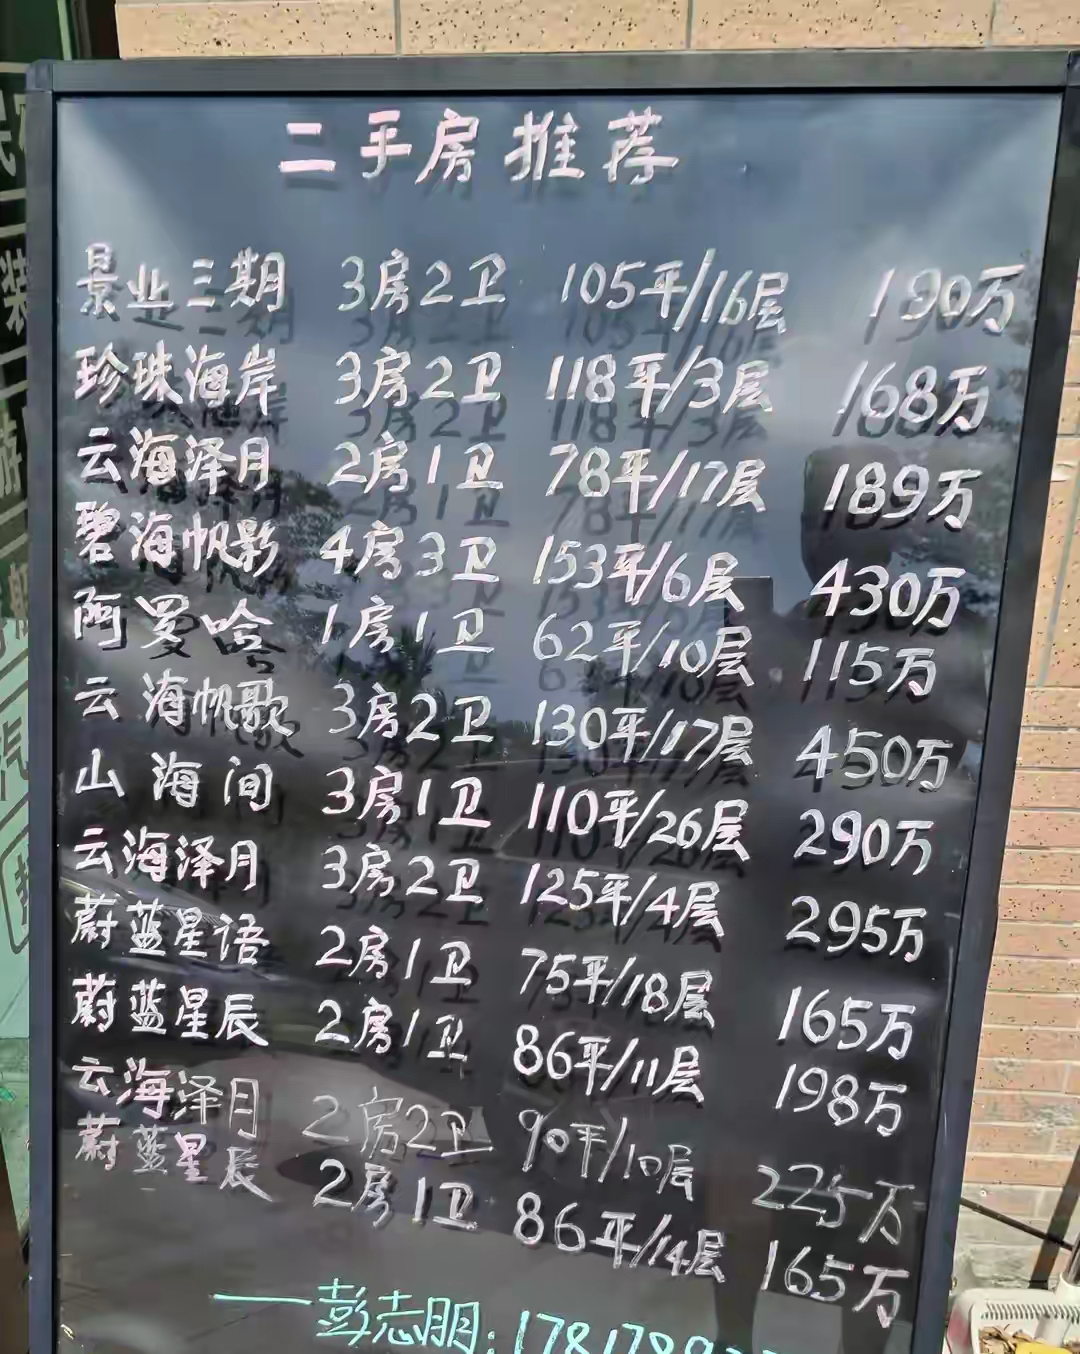 二手房推荐
景业三期 3房2卫 105平/16层 190万
珍珠海岸 3房2卫 118平/3层 168万
云海泽月 2房1卫 78平/17层 189万
碧海帆影 4房3卫 153平/6层 430万
阿罗哈 1房1卫 62平/10层 115万
云海帆歌 3房2卫 130平/17层 450万
山海间 3房1卫 110平/26层 290万
云海泽月 3房2卫 125平/4层 295万
蔚蓝星语 2房1卫 75平/18层 165万
蔚蓝星辰 2房1卫 86平/11层 198万
云海泽月 2房2卫 90平/10层 225万
蔚蓝星辰 2房1卫 86平/14层 165万
——彭志朋: